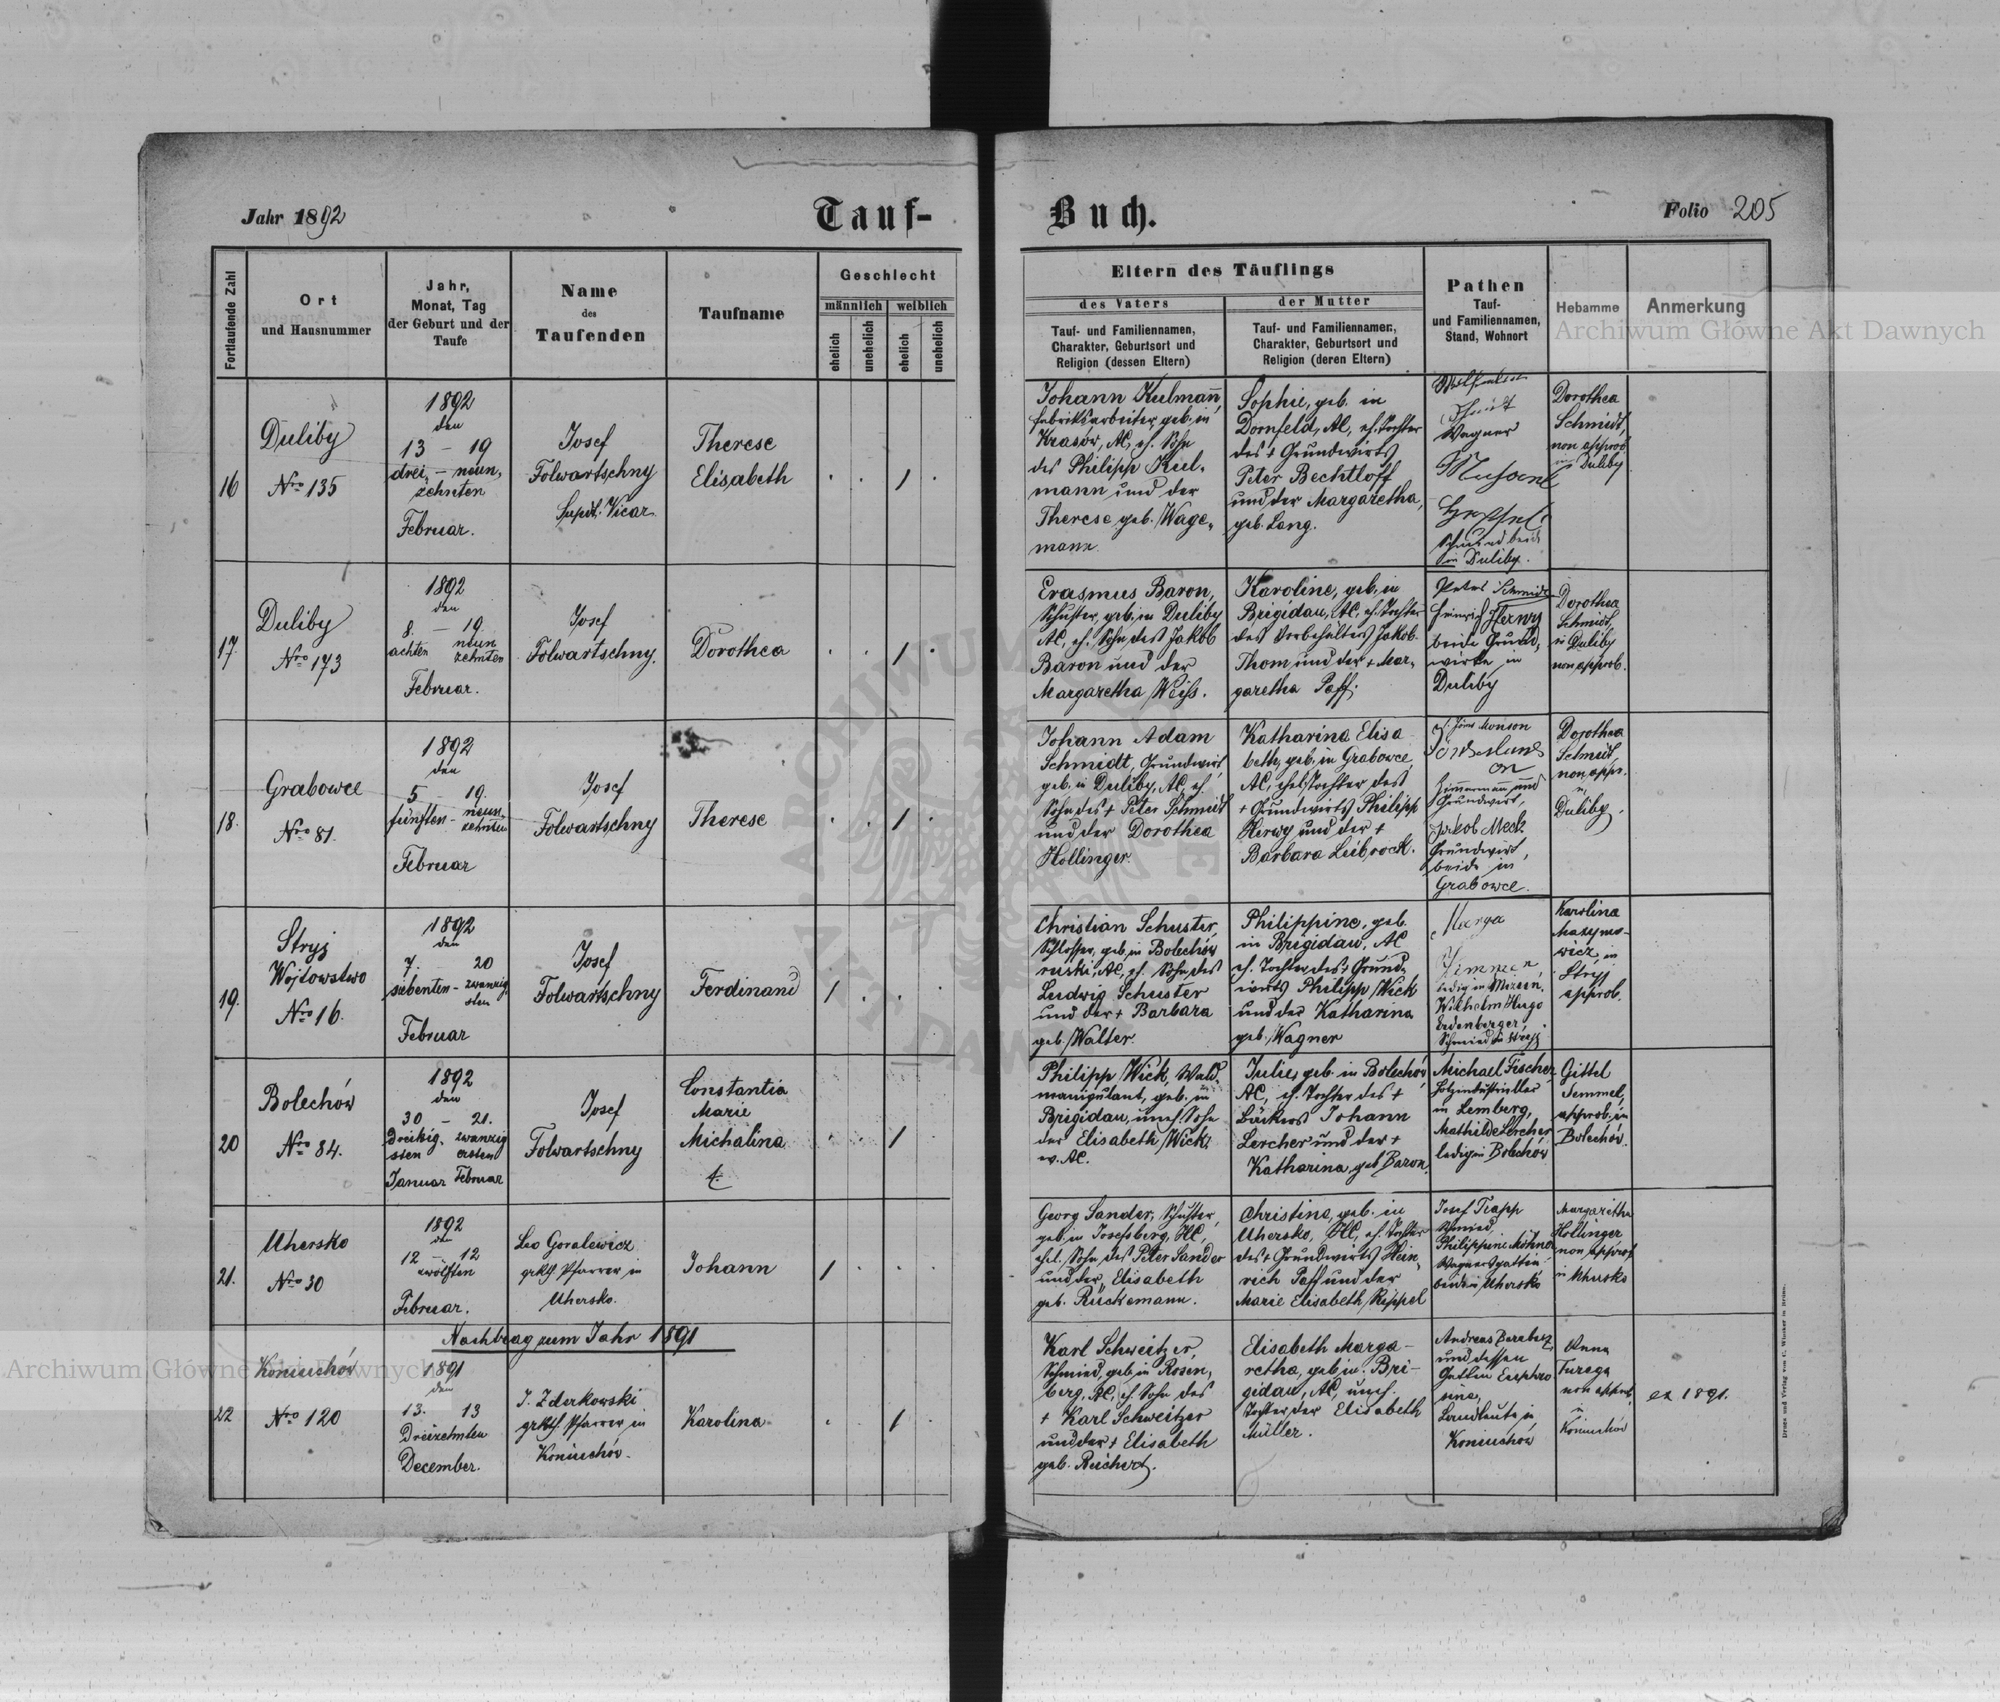 Jahr 1892
Tauf-
Buch.
Folio 205
Fortlaufende Zahl
Ort
und Hausnummer
Jahr,
Monat, Tag
der Geburt und der
Taufe
Name
des
Taufenden
Taufname
Geschlecht
männlich
weiblich
ehelich
unehelich
ehelich
unehelich
Eltern des Täuflings
des Vaters
der Mutter
Tauf- und Familiennamen,
Charakter, Geburtsort und
Religion (dessen Eltern)
Tauf- und Familiennamen,
Charakter, Geburtsort und
Religion (deren Eltern)
Pathen
Tauf-
und Familiennamen,
Stand, Wohnort
Hebamme
Anmerkung
16
Duliby
Nro 135
1892
den
13 - 19
drei, - neun,
zehnten
Februar.
Josef
Folwartschny
Supdt. Vicar
Therese
Elisabeth
Johann Kulmann,
Fabriksarbeiter, geb. in
Krasów, AC, eh. Sohn
des Philipp Kul-
mann und der
Therese geb. Wage-
mann.
Sophie, geb. in
Dornfeld, AC, eh. Tochter
des + Grundwirts
Peter Bechtloff
und der Margaretha,
geb. Lang.
Wagner
in Duliby.
Dorothea
Schmidt,
non approb.
in Duliby
17.
Duliby
Nro 173
1892
den
8. - 19.
achten neun
zehnten
Februar.
Josef
Folwartschny.
Dorothea
Erasmus Baron,
Schuster, geb. in Duliby
AC, eh. Sohn des Jakob
Baron und der
Margaretha Weiss.
Karoline, geb. in
Brigidau, AC, eh. Tochter
des Vorbehälters Jakob
Thom und der + Mar-
garetha Paff.
Peter Schmidt
Heinrich Herwy
beide Grund-
wirte in
Duliby
Dorothea
Schmidt,
in Duliby
non approb.
18.
Grabowce
Nro 81.
1892
den
5 - 19.
fünften - neun-
zehnten
Februar
Josef
Folwartschny
Therese
Johann Adam
Schmidt, Grundwirt,
geb. in Duliby, AC, eh.
Sohn des + Peter Schmidt
und der Dorothea
Hollinger.
Katharina Elisa
beth, geb. in Grabowce,
AC, ehel. Tochter des
+ Grundwirts Philipp
Herwy und der +
Barbara Leibrock.
Zimmermann und
Grundwirt,
Jakob Meck
Grundwirt,
beide in
Grabowce.
Dorothea
Schmidt,
non appr.
in
Duliby.
19.
Stryj
Wojtowstwo
Nro 16.
1892
den
7. 20
siebenten - zwanzig
sten
Februar
Josef
Folwartschny
Ferdinand
Christian Schuster,
Schlosser, geb. in Bolechów
ruski, AC, eh. Sohn des
Ludwig Schuster
und der + Barbara
geb. Walter.
Philippine, geb.
in Brigidau, AC
eh. Tochter des + Grund-
wirts Philipp Wick
und der Katharina
geb. Wagner
Wilhelm Hugo
Erdenberger,
Schmied in Stryj
Karolina
wicz, in
Stryj
approb.
20
Bolechów
Nro 84.
1892
den
30 - 21.
Dreißig- zwanzig
sten ersten
Januar Februar
Josef
Folwartschny
Constantia
Marie
Michalina
Philipp Wick, Wald-
manipulant, geb. in
Brigidau, uneh. Sohn
der Elisabeth Wick,
ev. AC.
Julie, geb. in Bolechów
AC, eh. Tochter des +
Bäckers Johann
Lercher und der +
Katharina, geb. Baron.
Michael Fischer,
Holzindustrieller
in Lemberg,
Mathilde Lercher
ledig in Bolechów
Gittel
Semmel,
approb. in
Bolechów.
21.
Uhersko
Nro 30
1892
den
12 - 12
zwölften
Februar.
Leo Goralewicz
grkth Pfarrer in
Uhersko.
Johann
Georg Sander, Schuster,
geb. in Josefsberg, HC,
ehl. Sohn des Peter Sander
und der Elisabeth
geb. Rückemann.
Christine, geb. in
Uhersko, HC, eh. Tochter
des + Grundwirts Hein-
rich Paff und der
Marie Elisabeth Rippel
Josef Trapp
Schmied,
Philippine
Wagnersgattin
beide in Uhersko
Margaretha
Hollinger
non approb
in Uhersko
Nachtrag zum Jahr 1891
22
Koniuchów
Nro 120
1891
den
13. 13
Dreizehnten
December.
J. Zderkowski
grkth. Pfarrer in
Koniuchów.
Karolina
Karl Schweitzer,
Schmied, geb. in Rosen-
berg, AC, eh. Sohn des
+ Karl Schweitzer
und der + Elisabeth
geb. Reichert.
Elisabeth Marga-
retha, geb. in Bri-
gidau, AC, uneh.
Tochter der Elisabeth
Müller.
Andreas
und dessen
Gattin Euphro
sine,
Landleute in
Koniuchów
Anna
non approb.
in
Koniuchów
ex 1891.
Archiwum Główne Akt Dawnych
Archiwum Główne Akt Dawnych